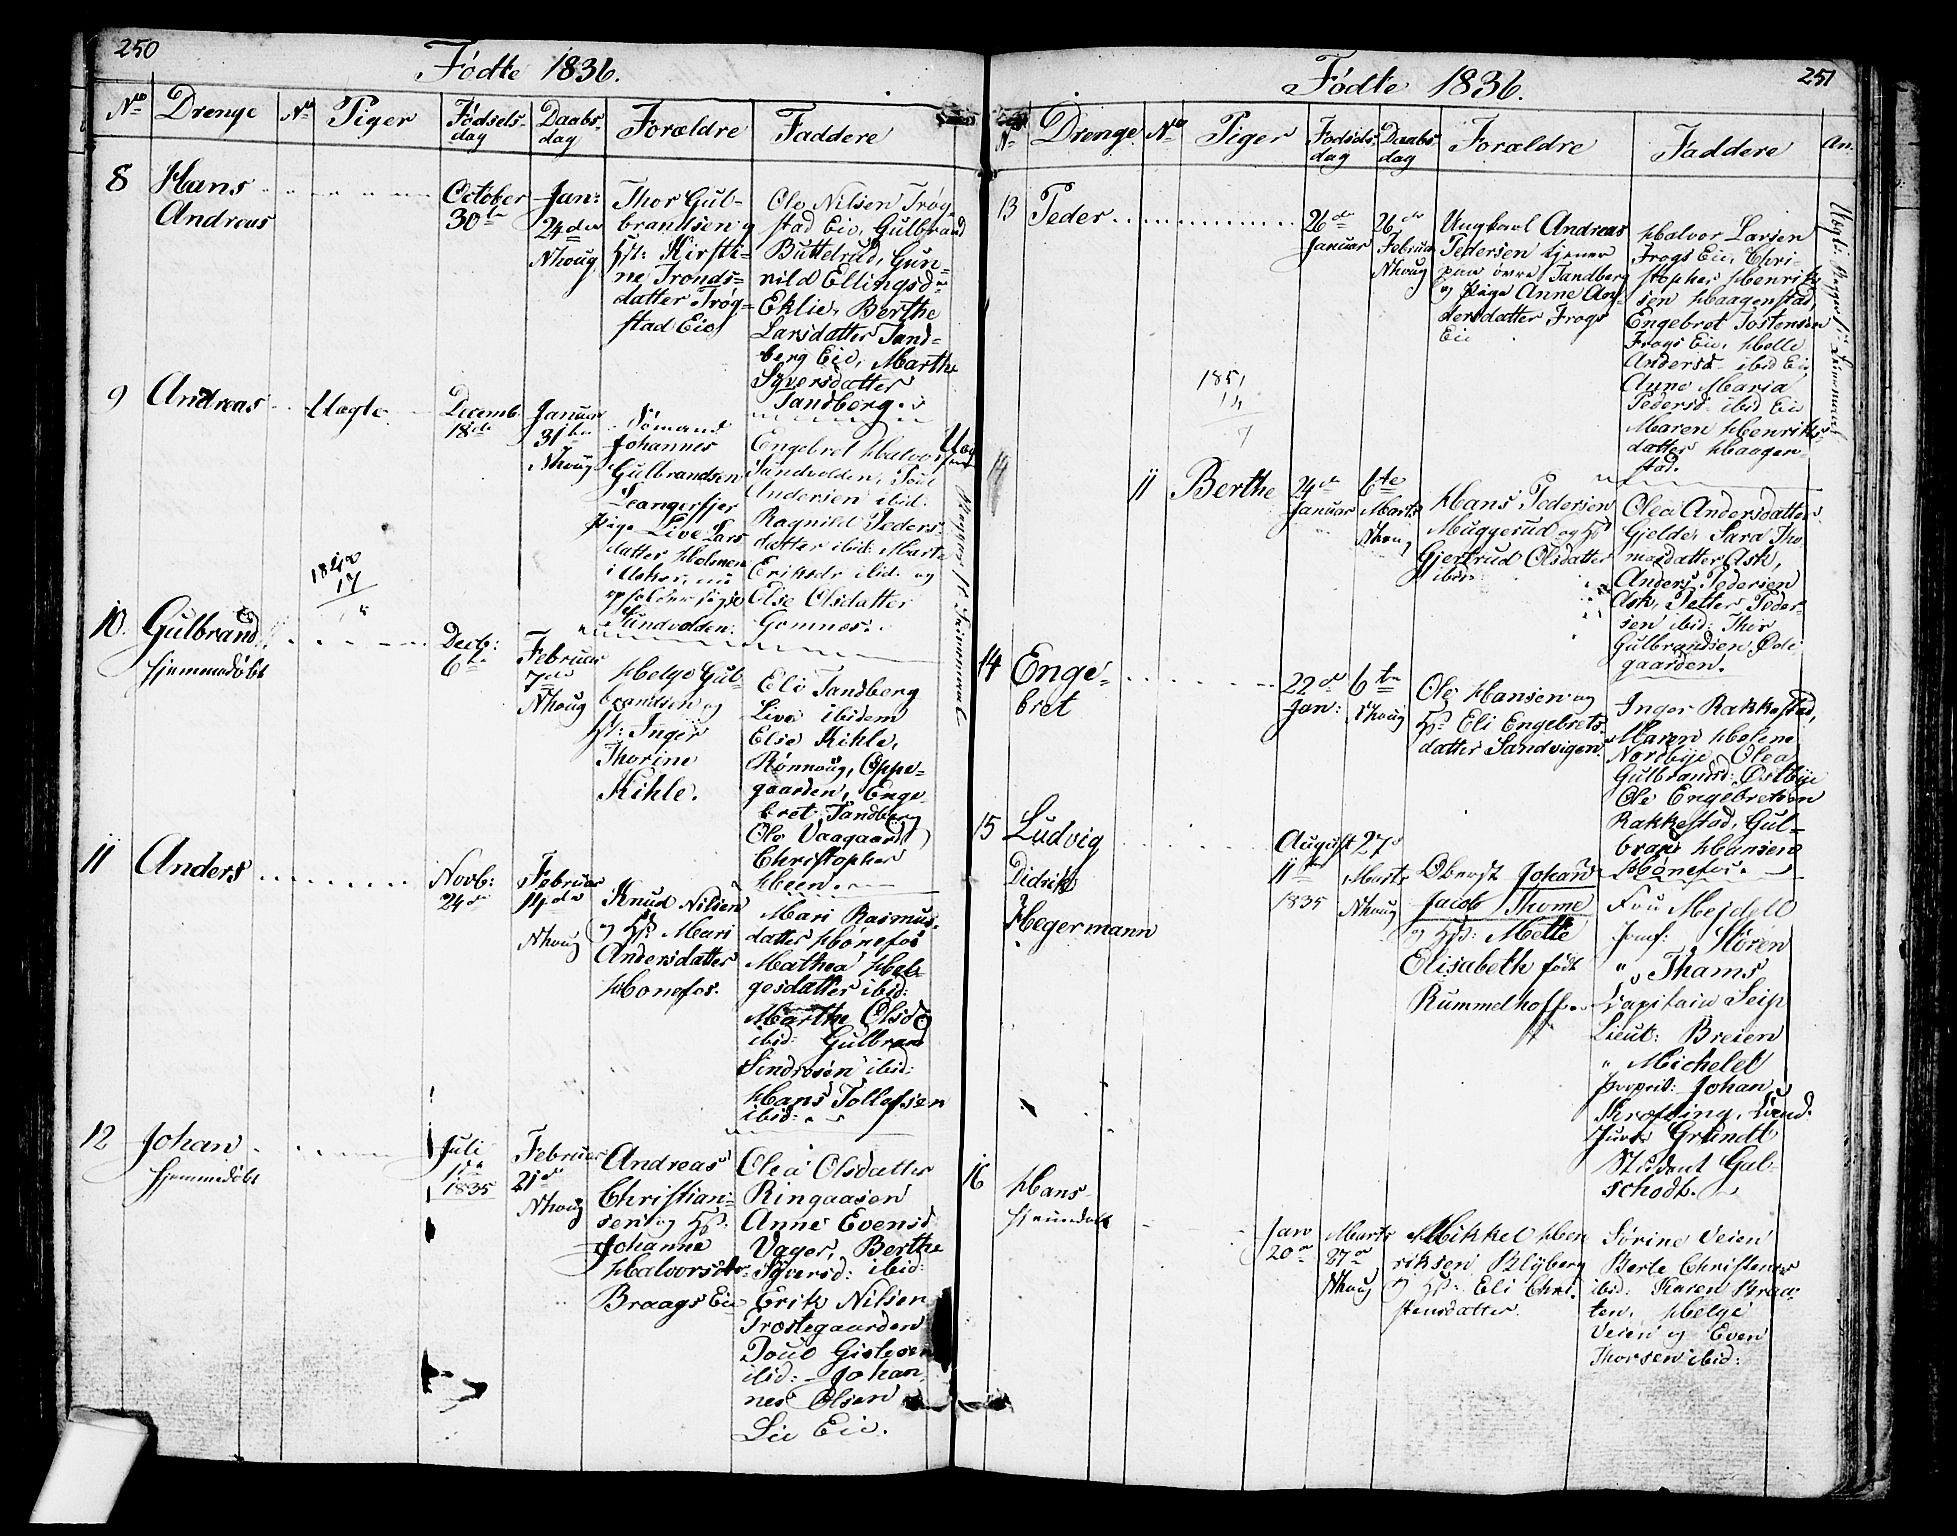 250
Fødte 1836.
No Drenge No Piger Fødsels- dag Daabs- dag Forældre Faddere
8
Hans
Andreas
October
30te
Jan:
24de
Nhoug
Thor Gul-
brandsen og
Hst: Kirsti-
ne Tronds-
datter Trøg-
stad Eie
Ole Nilsen Trøg
stad Eie, Gulbrand
Buttelrud, Gun-
nild Ellingsdr
Eklie, Berthe
Larsdatter Tand-
berg Eie, Marthe
Syversdatter
Tandberg.
9
Andreas
Uægte
Decemb.
18de
Januar
31te
Nhoug
Sømand
Johannes
Gulbrandsen
Leangerfjer
Pige Live Lars
datter Holmen
i Asker, nu
opholder sig se
Sundvolden.
Engebret Halvors
Sundvolden, Poul
Andersen ibid:
Ragnild Peders-
datter ibid: Marte
Eriksdr ibid: og
Else Olsdatter
Gomnes.
1842
17
10.
Gulbrand
hjemmedøbt
Decb:
6te
Februar
7de
Nhoug
Helge Gul-
brandsen og
Hst: Inger
Thorine
Kihle.
Eli Tandberg
Live ibidem
Else Kihle,
Rønnoug, Oppe-
gaarden, Enge-
bret Tandberg
Ole Vaagaard
Christopher
Heen.
11
Anders
Novb:
24de
Februar
14de
Nhoug
Knud Nilsen
og Hst: Mari
Andersdatter
Honefos.
Mari Rasmus-
datter Hønefos
Mathea Hel-
gesdatter ibid:
Marthe Olsd
ibid: Gulbrand
Sindresen ibid:
Hans Tollefsen
ibid:
12
Johan
hjemmedøbt
Juli
1835
Februar
21de
Nhoug
Andreas
Christian-
sen og Hst:
Johanne
Halvorsdtr
Braags Eie
Olea Olsdatter
Ringaasen
Anne Evensd
Vager, Berthe
Syversd: ibid:
Erik Nilsen
Trostegaarden
Poul Gislesen
ibid: Johan-
nes Olsen
Lie Eie.
251
Fødte 1836.
No Drenge No Piger Fødsels- dag Daabs- dag Forældre Faddere An.
13
Peder
26de
Januar
26de
Februar
Nhoug
Ungkarl Andreas
Pedersen tjener
paa øvre Tandberg
og Pige Anne An-
dersdatter Frogs
Eie
Halvor Larsen
Frogs Eie, Chri-
stopher Henrik-
sen Haagenstad,
Engebret Jostensen
Frogs Eie, Helle
Andersd ibid Eie
Anne Maria
Pedersd ibid Eie
Maren Henriks-
datter Haagen-
stad.
1851
14
11
Berthe
24de
Januar
6te
Marts
Nhoug
Hans Pedersen
Muggerud og Hst
Gjertrud Olsdatter
ibid:
Olea Andersdatter
Gjelde, Sara Tho-
masdatter Ask,
Anders Pedersen
Ask, Petter Peder-
sen ibid: Thor
Gulbrandsen, Ødi-
gaarden.
14
Enge-
bret
22de
Jan:
6te
Nhoug
Ole Hansen og
Hst: Eli Engebrets-
datter Sandvigen.
Inger Rakkestad,
Maren Helene
Nordbye, Olea
Gulbrandsd: Østbye
Ole Engebretsen
Rakkestad, Gul-
brand Hansen
Hønefos.
15
Ludvig
Didrik
Hegermann
August
11te
1835
27de
Marts
Nhoug
Oberst Johan
Jacob Thome
og Hst: Mette
Elisabeth født
Rummelhoff.
Fru Mejdell
Jomf: Støren
" Thams
Capitain Seip
Lieut: Breien
" Michelet
Proprit: Johan
Thrøfling, Cand.
Juris Grundt
Student Gul-
schodt.
16
Hans
hjemmedøbt
Janv
20de
Marts
27de
Nhoug
Mikkel Hen
riksen Blyberg
og Hst: Eli Chri-
stensdatter
Sørine Veien
Berte Christens
ibid: Karen Braa-
ten, Helge
Veien og Even
Thorsen ibid: